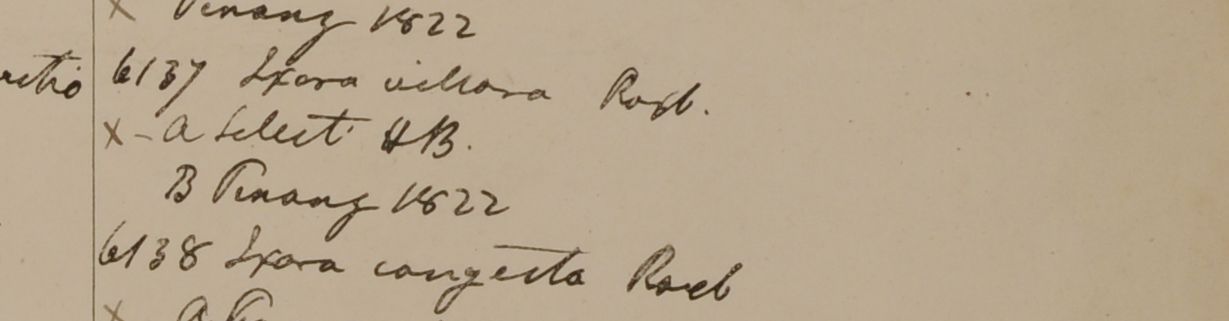 x Penang 1822
6137 Ixora villosa Roxb.
x - a Silhet HB.
B Penang 1822
6138 Ixora congesta Roxb
x a